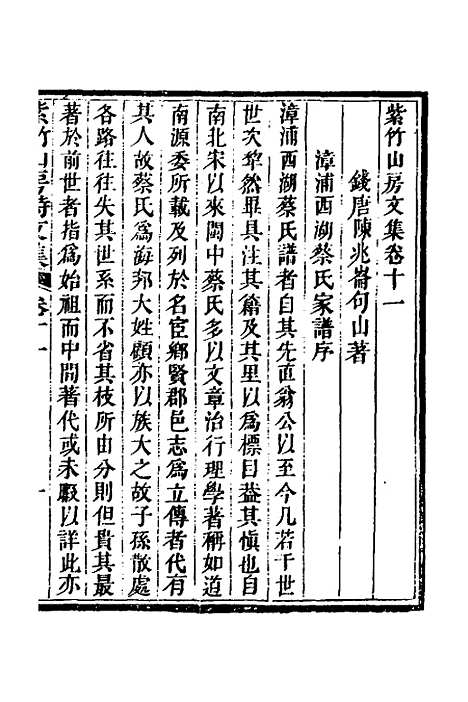 紫竹山房文集卷十一
錢唐陳兆崙句山著
漳浦西湖蔡氏家譜序
漳浦西湖蔡氏譜者自其先直翁公以至今凡若干世
世次犂然畢具注其籍及其里以爲標目葢其愼也自
南北宋以來閩中蔡氏多以文章治行理學著稱如道
南源委所載及列於名宦鄉賢郡邑志爲立傳者代有
其人故蔡氏爲海邦大姓顧亦以族大之故子孫散處
各路往往失其世系而不省其枝所由分則但貴其最
著於前世者指爲始祖而中間著代或未暇以詳此亦
紫竹山房詩文集 卷十一 一